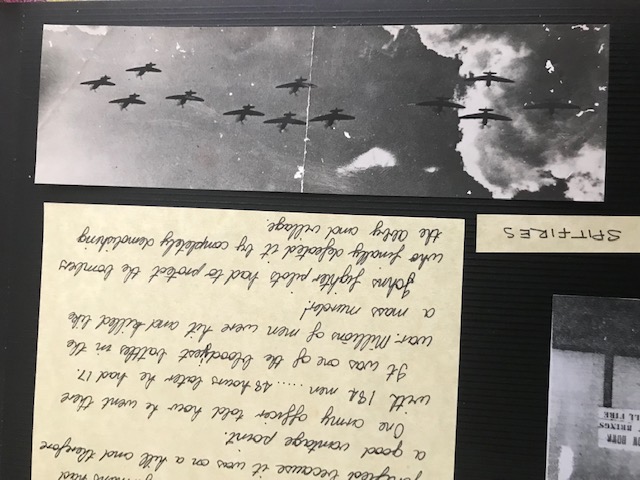 because it was on a hill and therefore
a good vantage point.
One army officer told how he went there
with 182 men ..... 48 hours later he had 17.
It was one of the bloodiest battles in the
war. Millions of men were hit and killed like
a mass murder!
Johns fighter pilots had to protect the bombers
who finally defeated it by completely demolishing
the Abby and village.
SPITFIRES
DOWN
BRINGS
FIRE